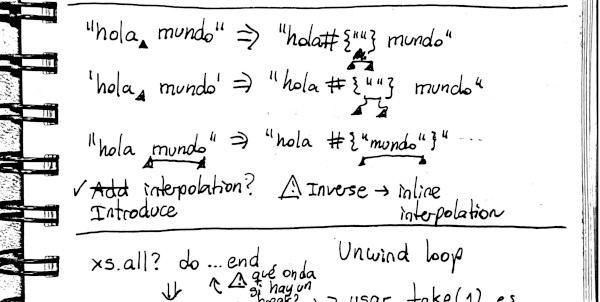 "hola mundo" ⇒ "hola#{""} mundo"
'hola mundo' ⇒ "hola #{""} mundo"
"hola mundo" ⇒ "hola #{"mundo"}" ...
✓ Add interpolation? ⚠ Inverse → inline
Introduce interpolation
xs.all? do ... end Unwind loop
⚠ qué onda
si hay un
usar take(1) es